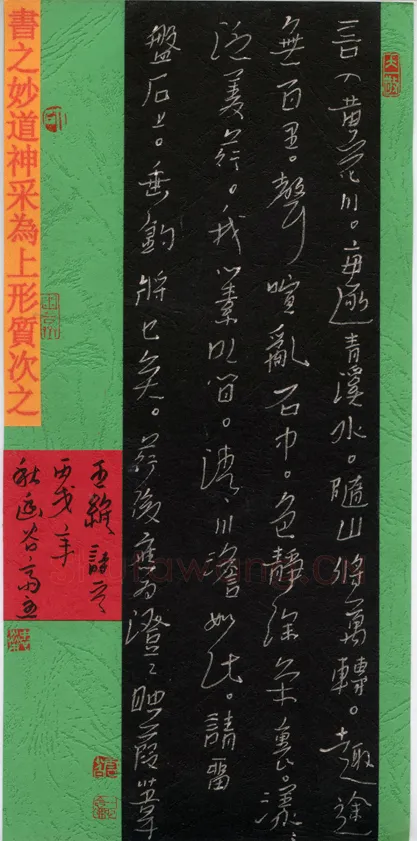 言入黄花川。每逐青溪水。隨山将萬轉。趣途
無百里。聲喧亂石中。色静深松裏。漾〻
泛菱荇。我心素已閒。清川澹如此。請留
盤石上。垂釣將已矣。荇後應為澄〻映葭葦
書之妙道神采為上形質次之
王維詩
丙戌年
shufawang.cn